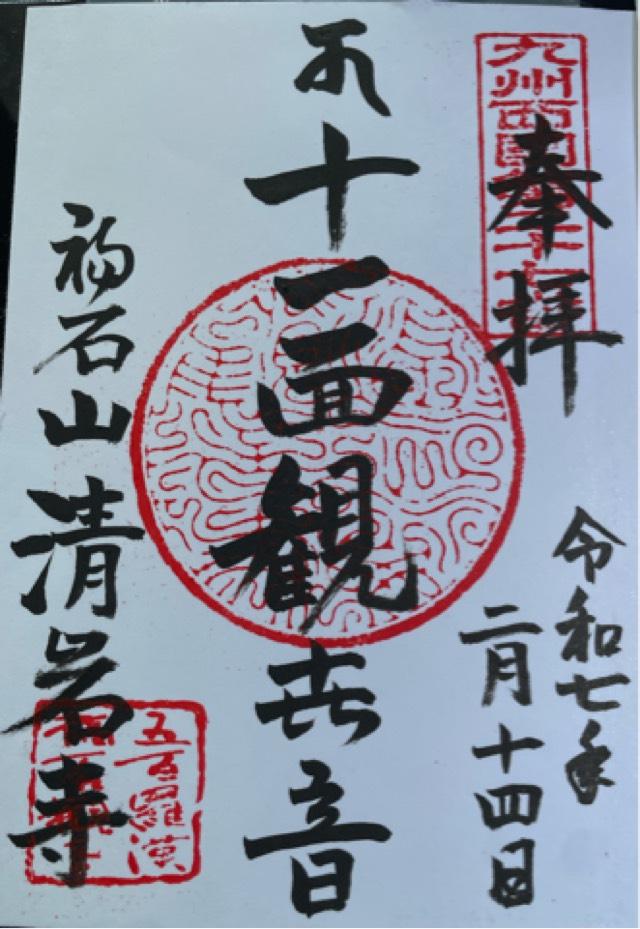 奉拝
令和七年
二月十四日
十一面観世音
福石山
清岩寺
九州西国第二十七番
五百羅漢